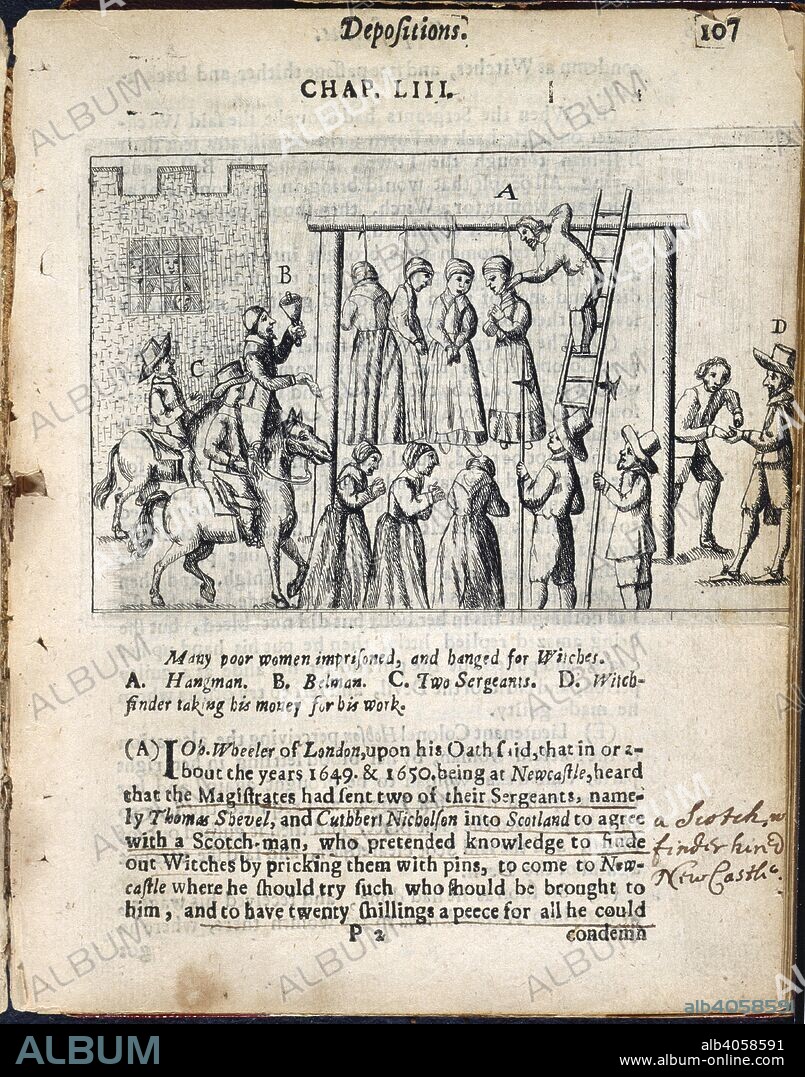 Depositions.
107
CHAP. LIII.
A
B
C
D
Many poor women imprisoned, and hanged for Witches.
A. Hangman. B. Belman. C. Two Sergeants. D. Witch-
finder taking his money for his work.
(A) IOh. Wheeler of London, upon his Oath said, that in or a-
bout the years 1649. & 1650. being at Newcastle, heard
that the Magistrates had sent two of their Sergeants, name-
ly Thomas Shevel, and Cuthbert Nicholson into Scotland to agree
with a Scotch-man, who pretended knowledge to finde
out Witches by pricking them with pins, to come to New-
castle where he should try such who should be brought to
him, and to have twenty shillings a peece for all he could
P 2
condemn
a Scotch
finder hired
New Castle
ALBUM
alb4058591
ALBUM
alb4058591
www.album-online.com